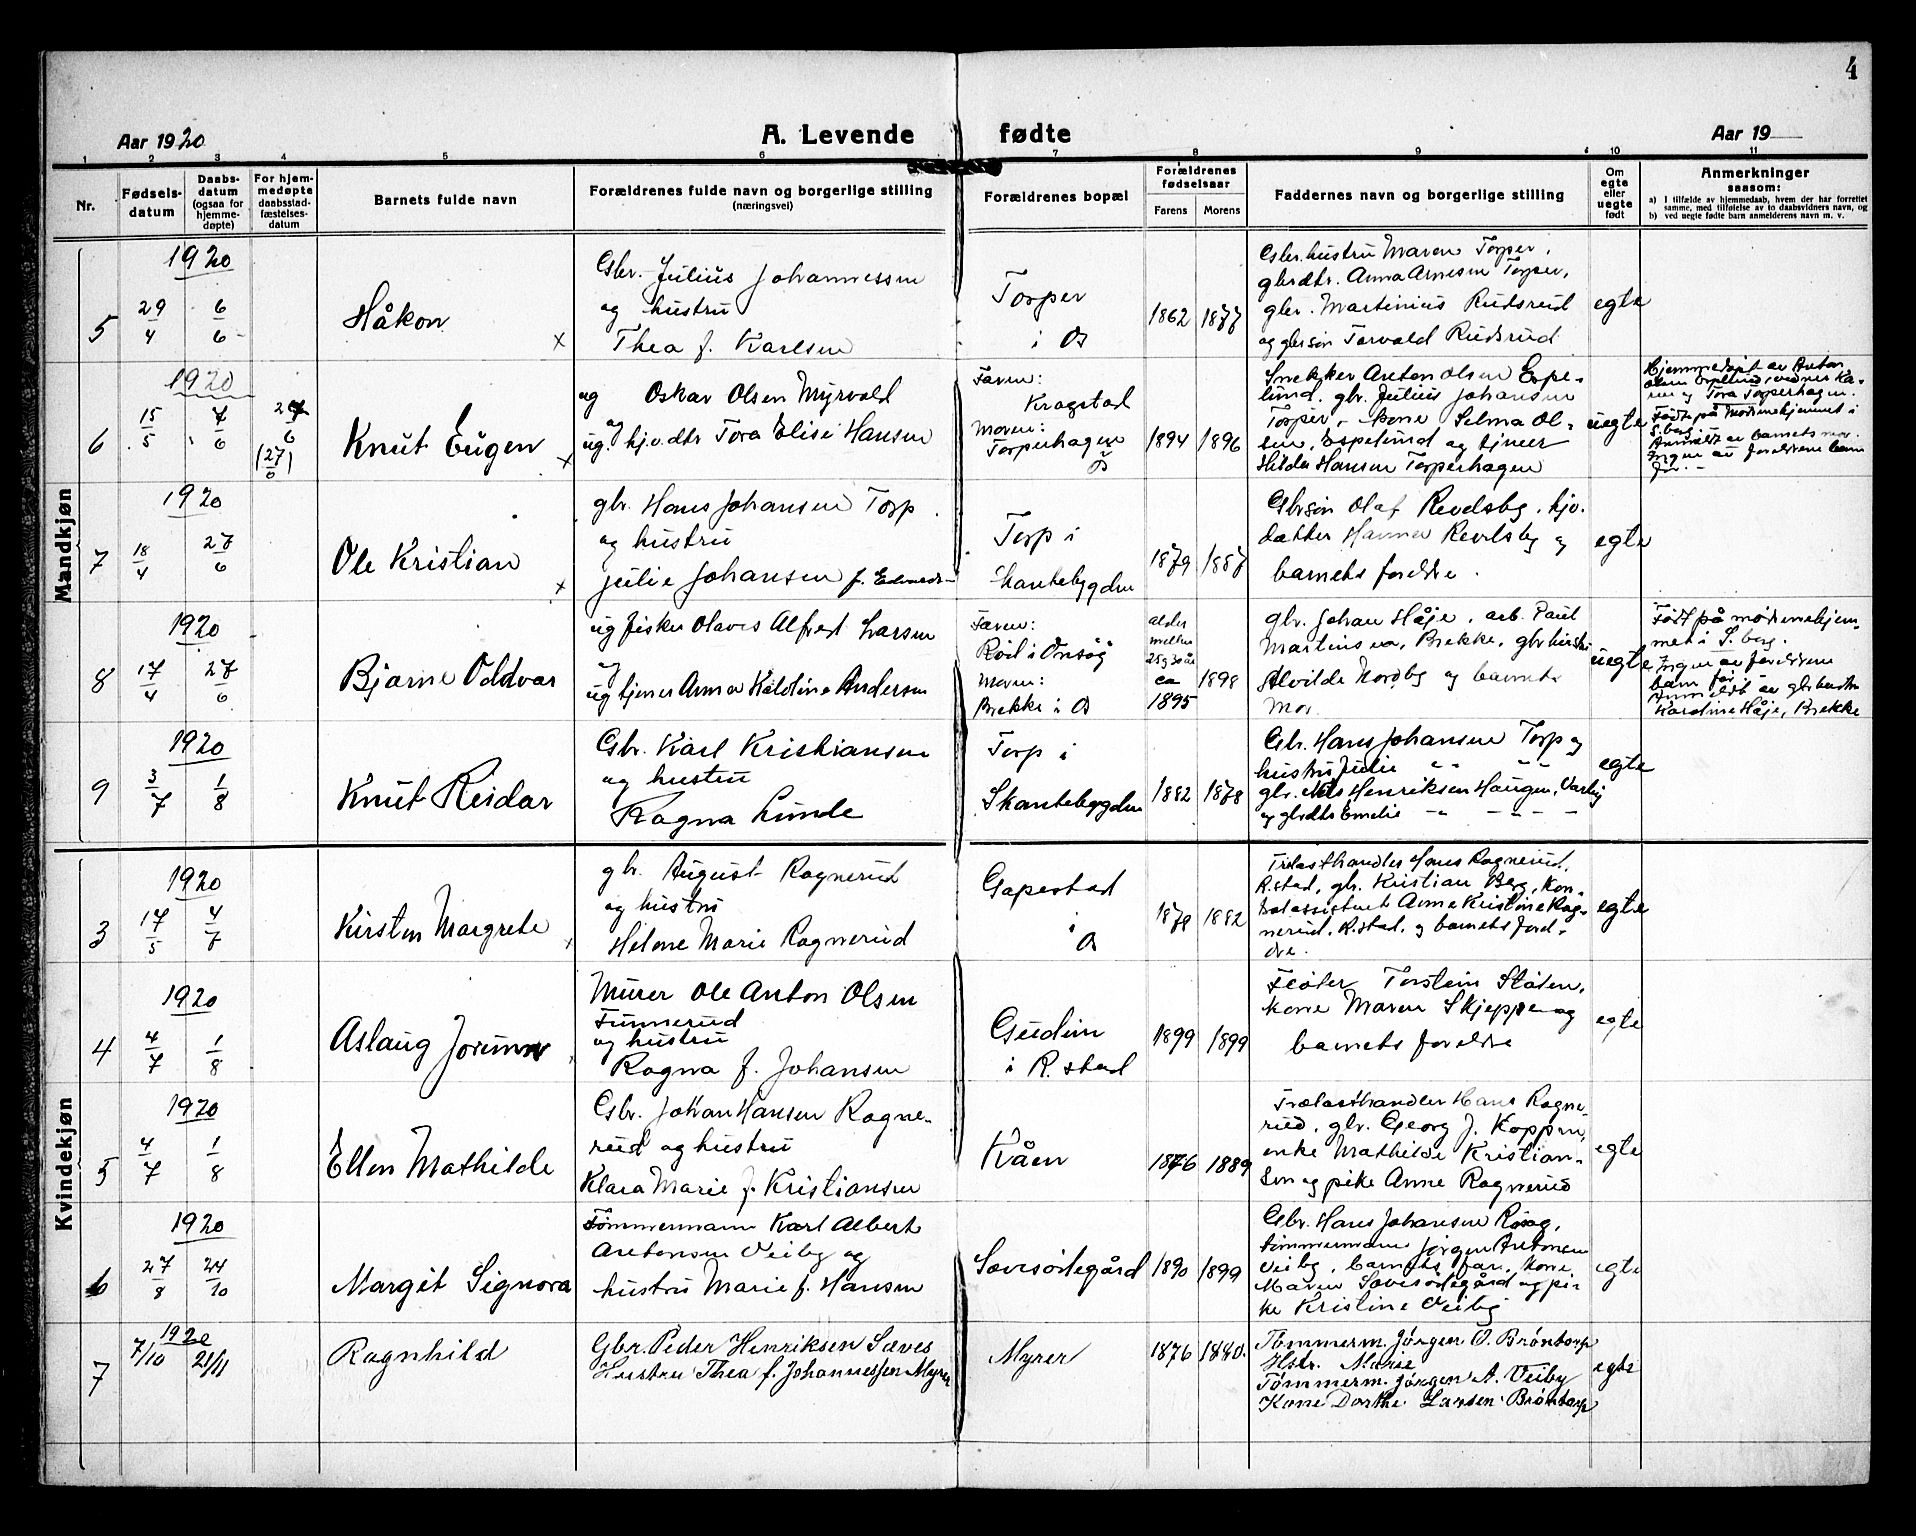 4
Aar 1920
A. Levende fødte
Aar 19
1 2 3 4 5 6 7 8 9 10 11
Nr.
Fødsels-
datum
Daabs-
datum
(ogsaa for
hjemme-
døpte)
For hjem-
medøpte
daabsstad-
fæstelses-
datum
Barnets fulde navn
Forældrenes fulde navn og borgerlige stilling
(næringsvei)
Forældrenes bopæl
Forældrenes
fødselsaar
Farens Morens
Faddernes navn og borgerlige stilling
Om
egte
eller
uegte
født
Anmerkninger
saasom:
a) I tilfælde av hjemmedaab, hvem der har forrettet
samme, med tilføielse av to daabsvidners navn, og
b) ved uegte fødte barn anmelderens navn m. v.
Mandkjøn
5
1920
29/4
6/6
Håkon
Gbr. Julius Johannessen
og hustru
Thea f. Karlsen
Torper
i Os
1862 1877
Gbr.hustru Maren Torper,
gbrdtr. Anna Arnesen Torper,
gbr. Martinius Rudsrud
og gbrsøn Torvald Rudsrud
egte
6
1920
15/5
7/6
27/6
Knut Eugen
ug Oskar Olsen Myrvold
og
ug. hj.v.dtr Tora Elise Hansen
Faren:
Kragstad
Moren:
Torperhagen
Os
1894 1896
Snekker Anton Olsen Espe-
lund, gbr. Julius Johansen
Torper, kone Selma Ol-
sen, Espelund og tjener
Hilda Hansen Torperhagen
uegte
Hjemmedøpt av Anton
Olsen Espelund, vidner Ka-
ren og Tora Torperhagen.
Født på Mødrehjemmet i
S.borg.
Anmeldt av barnets mor.
Ingen av foreldrene barn
før.
7
1920
18/4
27/6
Ole Kristian
gbr. Hans Johansen Torp
og hustru
Julie Johansen f.
Torp i
Skantebygden
1879 1887
Gbrsøn Olaf Revdsby, hjv.
datter Hanna Revdsby og
barnets foreldre.
egte
8
1920
17/4
27/6
Bjarne Oddvar
ug fisker Olaves Alfred Larsen
og
ug tjener Anna Kaldine Andersen
Faren:
Röd i Onsøy
Moren:
Brekke i Os
alder
mellem
25 og 30 år
ca
1895
1898
gbr. Johan Håje, arb. Paul
Martinsen, Brekke, gbr.hustru
Alvilde Nordby og barnets
Mor.
uegte
Født på mødrehjem-
met i S.borg.
Ingen av foreldrene
barn før.
Anmeldt av gbr.hustru
Kardine Håje, Brekke
9
1920
3/7
1/8
Knut Reidar
Gbr. Karl Kristiansen
og hustru
Ragna Lunde
Torp i
Skantebygden
1882 1878
Gbr. Hans Johansen Torp og
hustru Julie " "
gbr. Nils Henriksen Haugen, Varby
og gbrdtr Emelie
egte
Kvindekjøn
3
1920
17/5
4/7
Kirsten Margrete
gbr. August Ragnerud
og hustru
Helene Marie Ragnerud
Gapestad
i
Os
1878 1882
Trelasthandler Hans Ragnerud,
R.stad, gbr. Kristian Berg, kon-
torassistent Anne Kristine Rag-
nerud, R.stad, og barnets forel-
dre.
egte
4
1920
4/7
1/8
Aslaug Jorunn
Murer Ole Anton Olsen
Funnerud
og hustru
Ragna f. Johansen
Gudim
i R. stad
1899 1899
Fløter Torstein Sloten,
kone Maren Skjeppe og
barnets foreldre
egte
5
1920
4/7
1/8
Ellen Mathilde
Gbr. Johan Hansen Ragne-
rud og hustru
Klara Marie f. Kristiansen
Kåen
1876 1889
Trælasthandler Hans Ragne-
rud, gbr. Georg J. Koppen,
enke Mathilde Kristian-
sen og pike Anne Ragnerud
egte
6
1920
27/8
24/10
Margit Signora
Tømmermann Karl Albert
Antonsen Veiby og
hustru Marie f. Hansen
Sævesødegård
1890 1899
Gbr. Hans Johansen
tømmermann Jørgen Antonsen
Veiby, barnets far, kone
Maren Sævesødegård og pi-
ke Kristine Veiby
egte
7
1920
7/10
21/11
Ragnhild
Gbr. Peder Henriksen Sæves
Hustru Thea f. Johannessen Myrer
Myrer
1876 1880.
Tømmerm. Jörgen O. Bröntorp
Hstr. Marie
Tømmerm. Jörgen A. Veiby
Kone Dorthe Larsen Bröntorp
egte